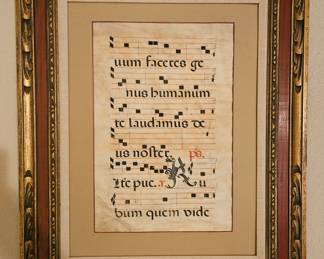 uum faceres ge
nus humanum
te laudamus de
us noster. ps.
Ite pue. r. Ru
bum quem vide